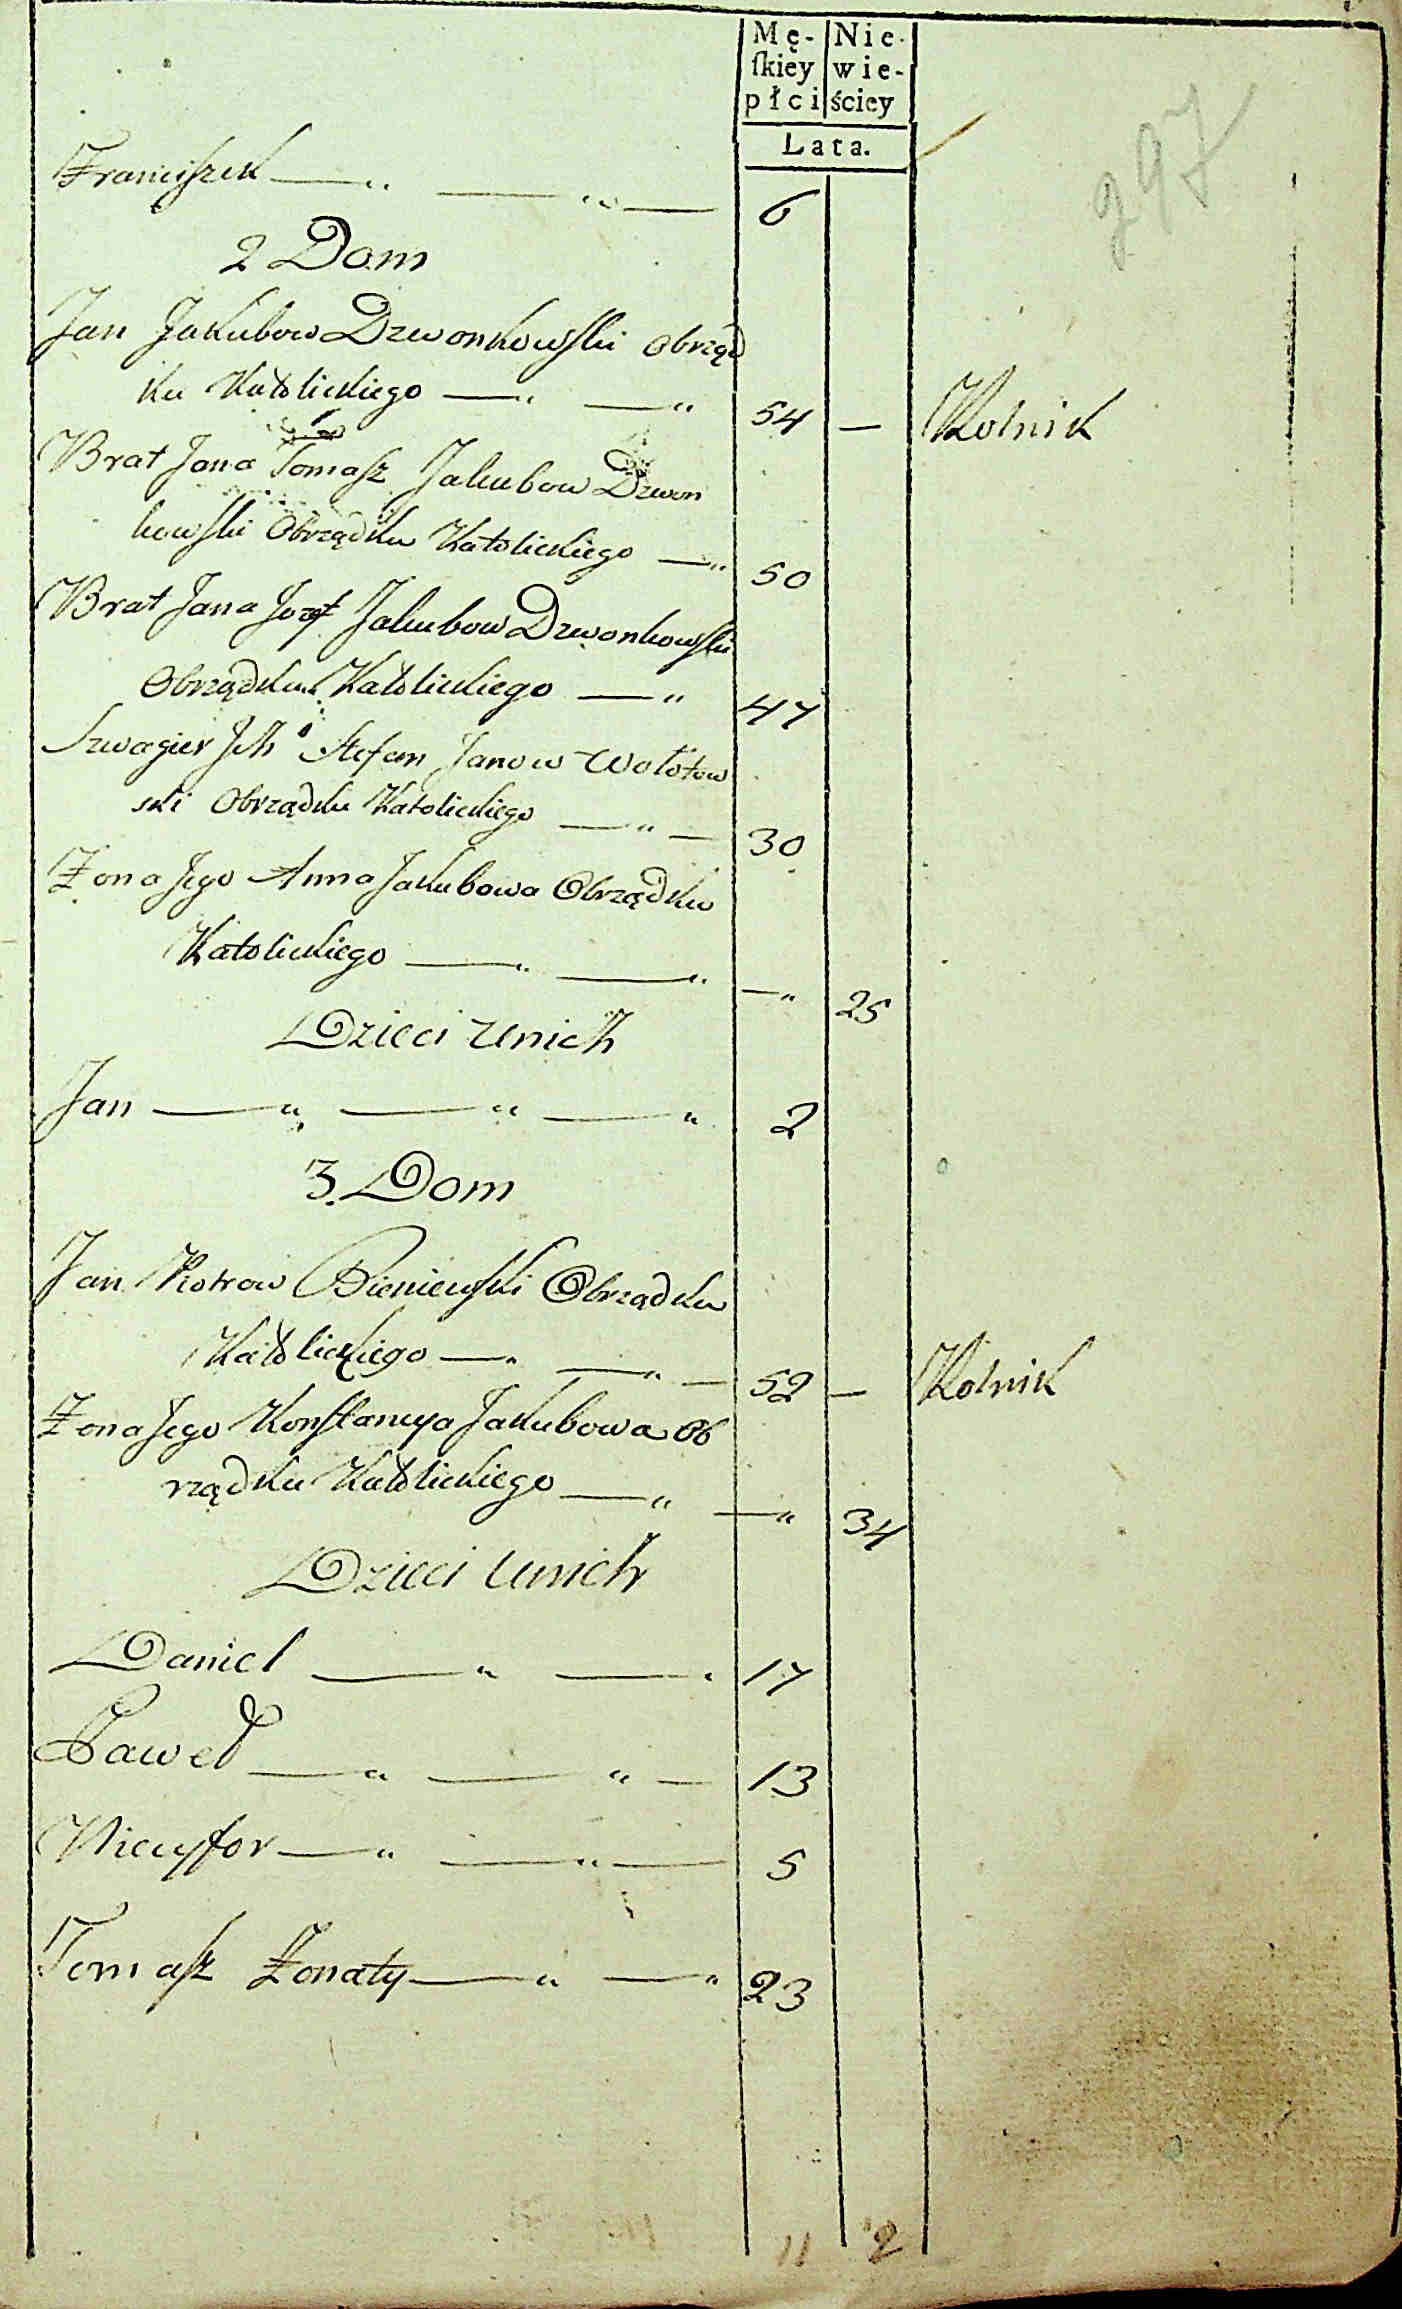 Mę- Nie-
skiey wie-
płci ściey
Lata.
297
Franciszek — „ — „ — 6
2 Dom
Jan Jakubow Dzwonkowski Obrząd
ku Katolickiego — „ — „ 54 — Rolnik
Brat Jana Tomasz Jakubow Dzwon
kowski Obrządku Katolickiego — „ 50
Brat Jana Jozef Jakubow Dzwonkowski
Obrządku Katolickiego — „ 47
Szwagier Jch Stefan Janow Wołotow
ski Obrządku Katolickiego — „ — 30
Żona Jego Anna Jakubowa Obrządku
Katolickiego — „ — „ — „ 25
Dzieci Unich
Jan — „ — „ — „ 2
3. Dom
Jan Piotrow Bieniewski Obrządku
Katolickiego — „ — „ — 52 — Rolnik
Żona Jego Konstancya Jakubowa Ob
rządku Katolickiego — „ — „ 34
Dzieci Unich
Daniel — „ — „ 17
Paweł — „ — „ — 13
Nicyfor — „ — „ — 5
Tomasz Żonaty — „ — „ 23
11 2